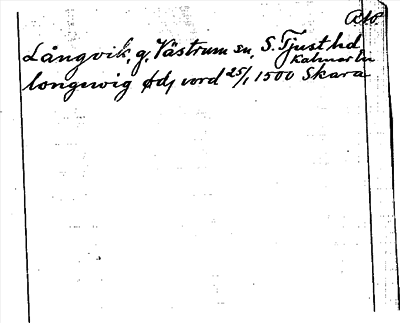 Långvik, g, Västrum sn, S. Tjust hd
Kalmar län
longewig ... vord 25/1 1500 Skara